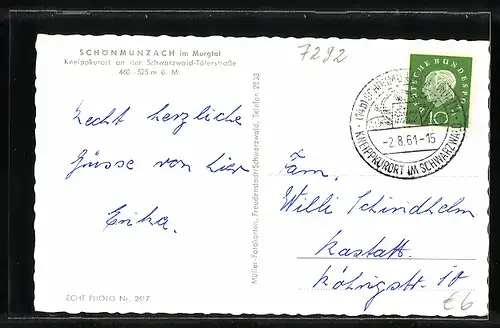 SCHÖNMÜNZACH im Murgtal
Kneippkurort an der Schwarzwald-Tälerstraße
460 - 525 m ü. M.
7292
DEUTSCHE BUNDESPOST
10
-2.8.61-15
KNEIPPKURORT IM SCHWARZWALD
Recht herzliche
Grüsse von hier
Erika.
Müller-Fotokarten, Freudenstadt/Schwarzwald, Telefon 2833
Fam.
Willi Schindhelm
Rastatt.
str. 10
ECHT PHOTO Nr. 2617
€6